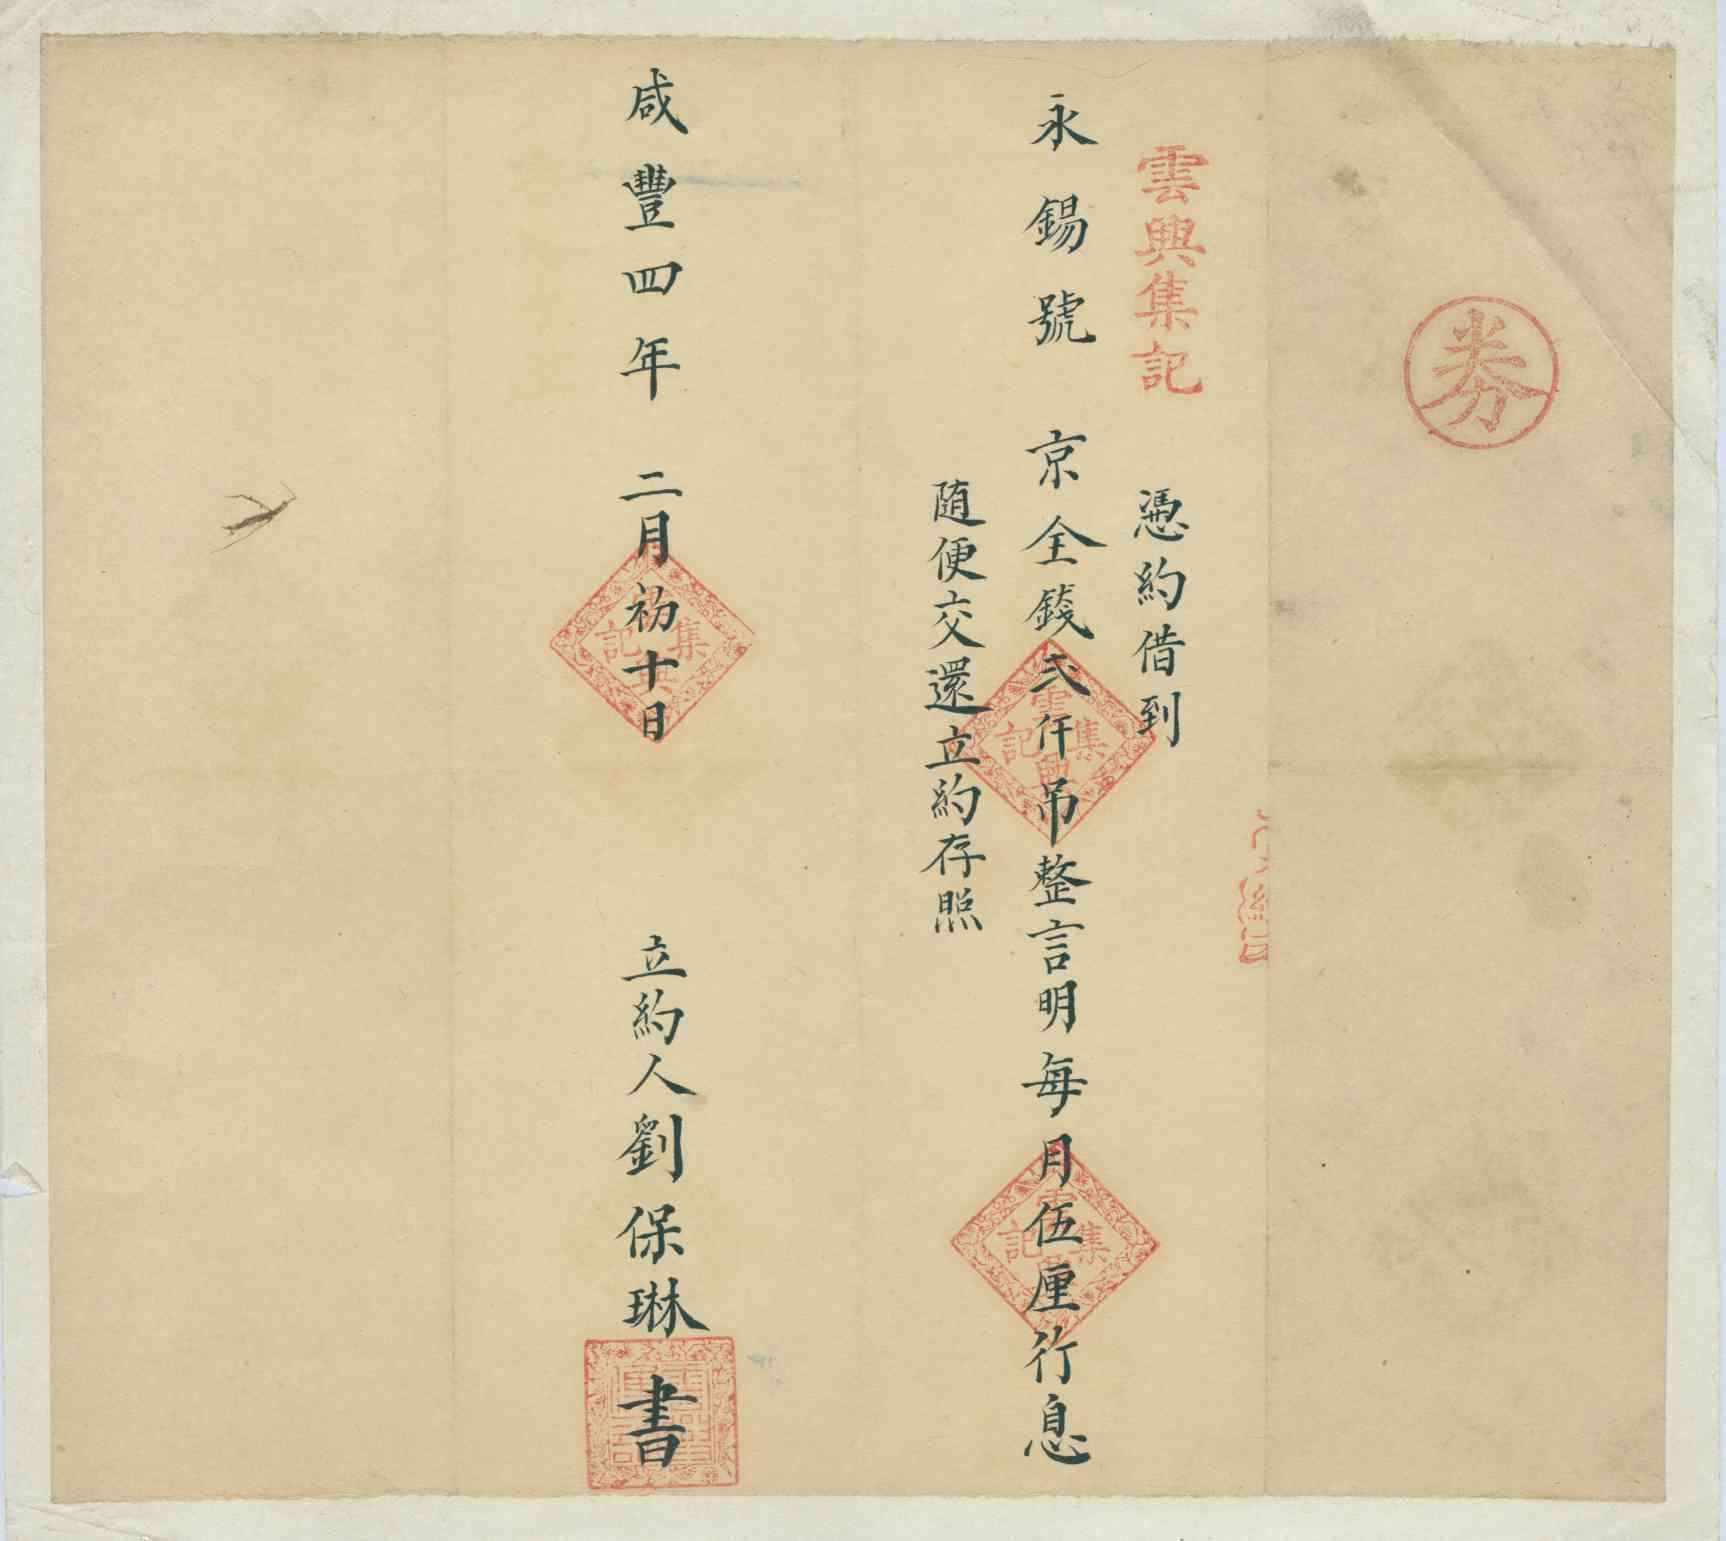 券
雲興集記
憑約借到
永錫號 京全錢弍仟吊整言明每月伍厘行息
随便交還立約存照
咸豐四年 二月初十日 立約人劉保琳書
雲興集記
雲興集記
集記